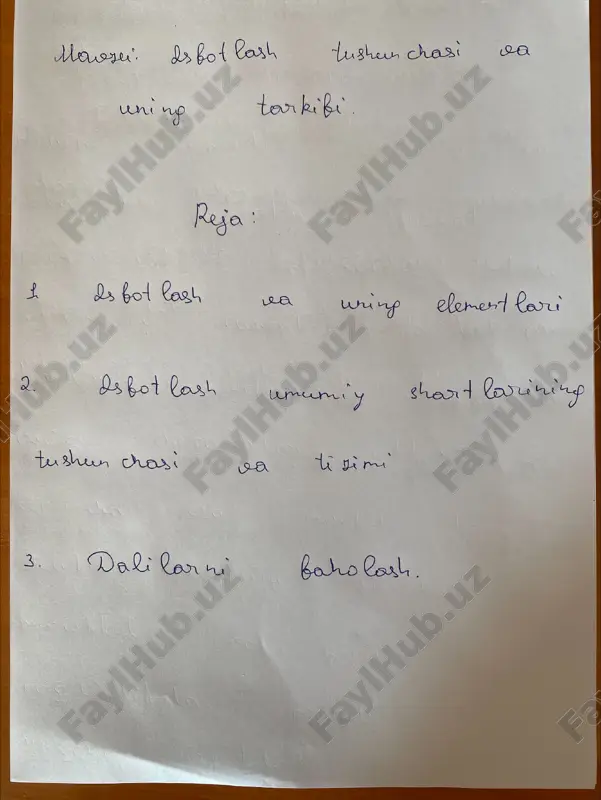 Mavzu: Isbotlash tushunchasi va
uning tarkibi.
Reja:
1 Isbotlash va uning elementlari
2. Isbotlash umumiy shartlarining
tushunchasi va tizimi
3. Dalilarni baholash.
FaylHub.uz
FaylHub.uz
FaylHub.uz
FaylHub.uz
FaylHub.uz
FaylHub.uz
FaylHub.uz